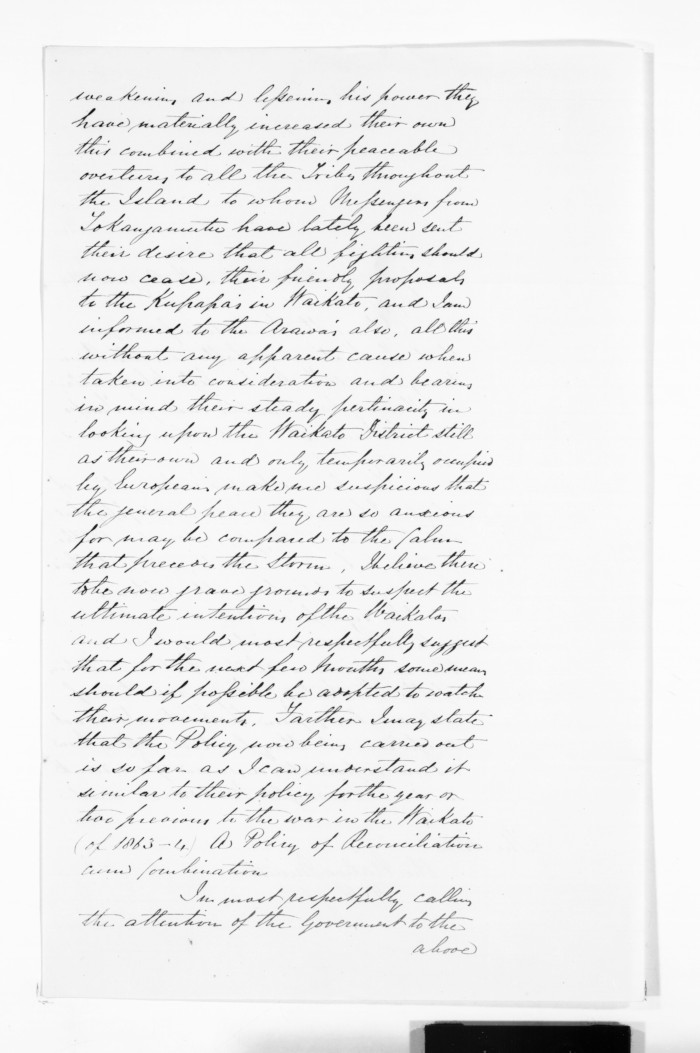 weakening and lessening his power they
have materially increased their own
this combined with their peaceable
overtures to all the Tribes throughout
the Island to whom Messengers from
Tokangamutu have lately been sent
their desire that all fighting should
now cease, their friendly proposals
to the Kupapa's in Waikato, and I am
informed to the Arawa's also, all this
without any apparent cause when
taken into consideration and bearing
in mind their steady pertinacity in
looking upon the Waikato District still
as their own and only temporarily occupied
by Europeans make me suspicious that
the general peace they are so anxious
for may be compared to the Calm
that precedes the Storm, I believe there
to be now grave grounds to suspect the
ultimate intentions of the Waikatos
and I would most respectfully suggest
that for the next few Months some means
should if possible be adopted to watch
their movements. Farther I may state
that the Policy now being carried out
is so far as I can understand it
similar to their policy for the year or
two previous to the war in the Waikato
(of 1863-4) A Policy of Reconciliation
cum Combination
In most respectfully calling
the attention of the Government to the
above